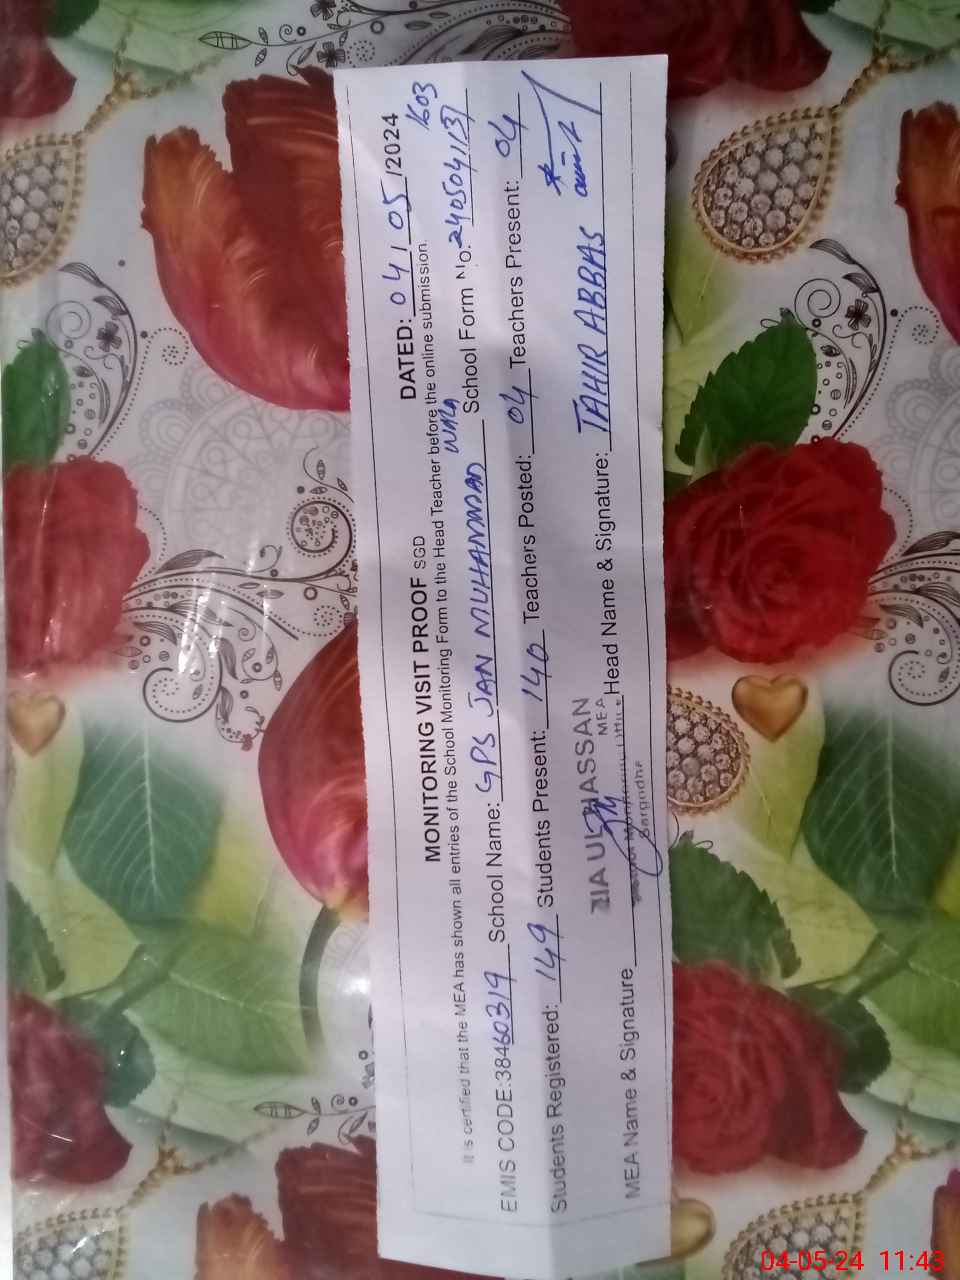 MONITORING VISIT PROOF SGD DATED: 04/05/2024
It is certified that the MEA has shown all entries of the School Monitoring Form to the Head Teacher before the online submission. 1603
EMIS CODE:38460319 School Name: GPS JAN MUHAMMAD WALA School Form No. 240504113
Students Registered: 149 Students Present: 140 Teachers Posted: 04 Teachers Present: 04
ZIA UL HASSAN
MEA
MEA Name & Signature Head Name & Signature: TAHIR ABBAS
Sargodha
04-05-24 11:43